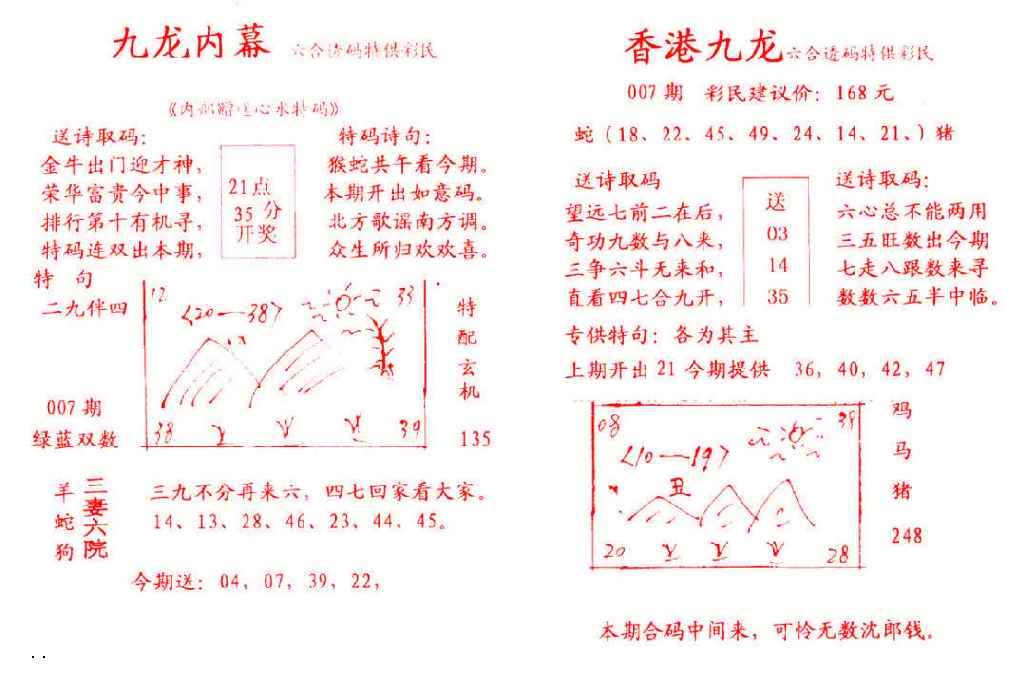 九龙内幕 六合透码特供彩民
《内部赠送心水特码》
送诗取码：
金牛出门迎才神，
荣华富贵今中事，
排行第十有机寻，
特码连双出本期，
21点
35分
开奖
特码诗句：
猴蛇共午看今期。
本期开出如意码。
北方歌谣南方调。
众生所归欢欢喜。
特 句
二九伴四
007期
绿蓝双数
12
<20—38>
33
38
39
特
配
玄
机
135
羊
蛇
狗
三妻六院
三九不分再来六，四七回家看大家。
14、13、28、46、23、44、45。
今期送：04，07，39，22，
香港九龙 六合透码特供彩民
007期 彩民建议价：168元
蛇（18、22、45、49、24、14、21、）猪
送诗取码
望远七前二在后，
奇功九数与八来，
三争六斗无来和，
直看四七合九开，
送
03
14
35
送诗取码：
六心总不能两用
三五旺数出今期
七走八跟数来寻
数数六五半中临。
专供特句：各为其主
上期开出21今期提供 36，40，42，47
08
<10—19>
39
丑
20
28
鸡
马
猪
248
本期合码中间来，可怜无数沈郎钱。